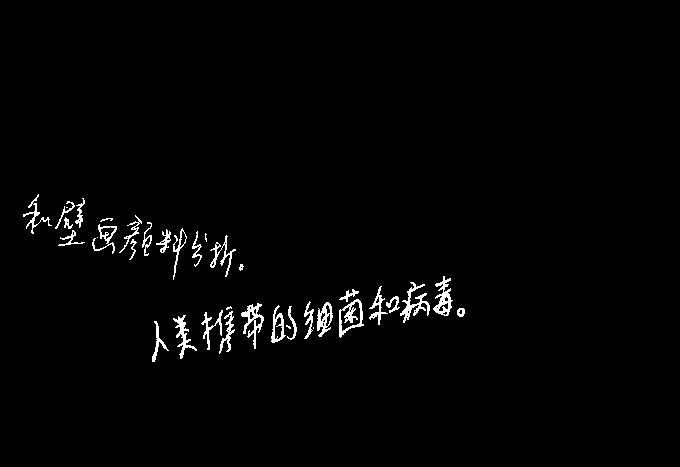 和壁画颜料分析。
人类携带的细菌和病毒。